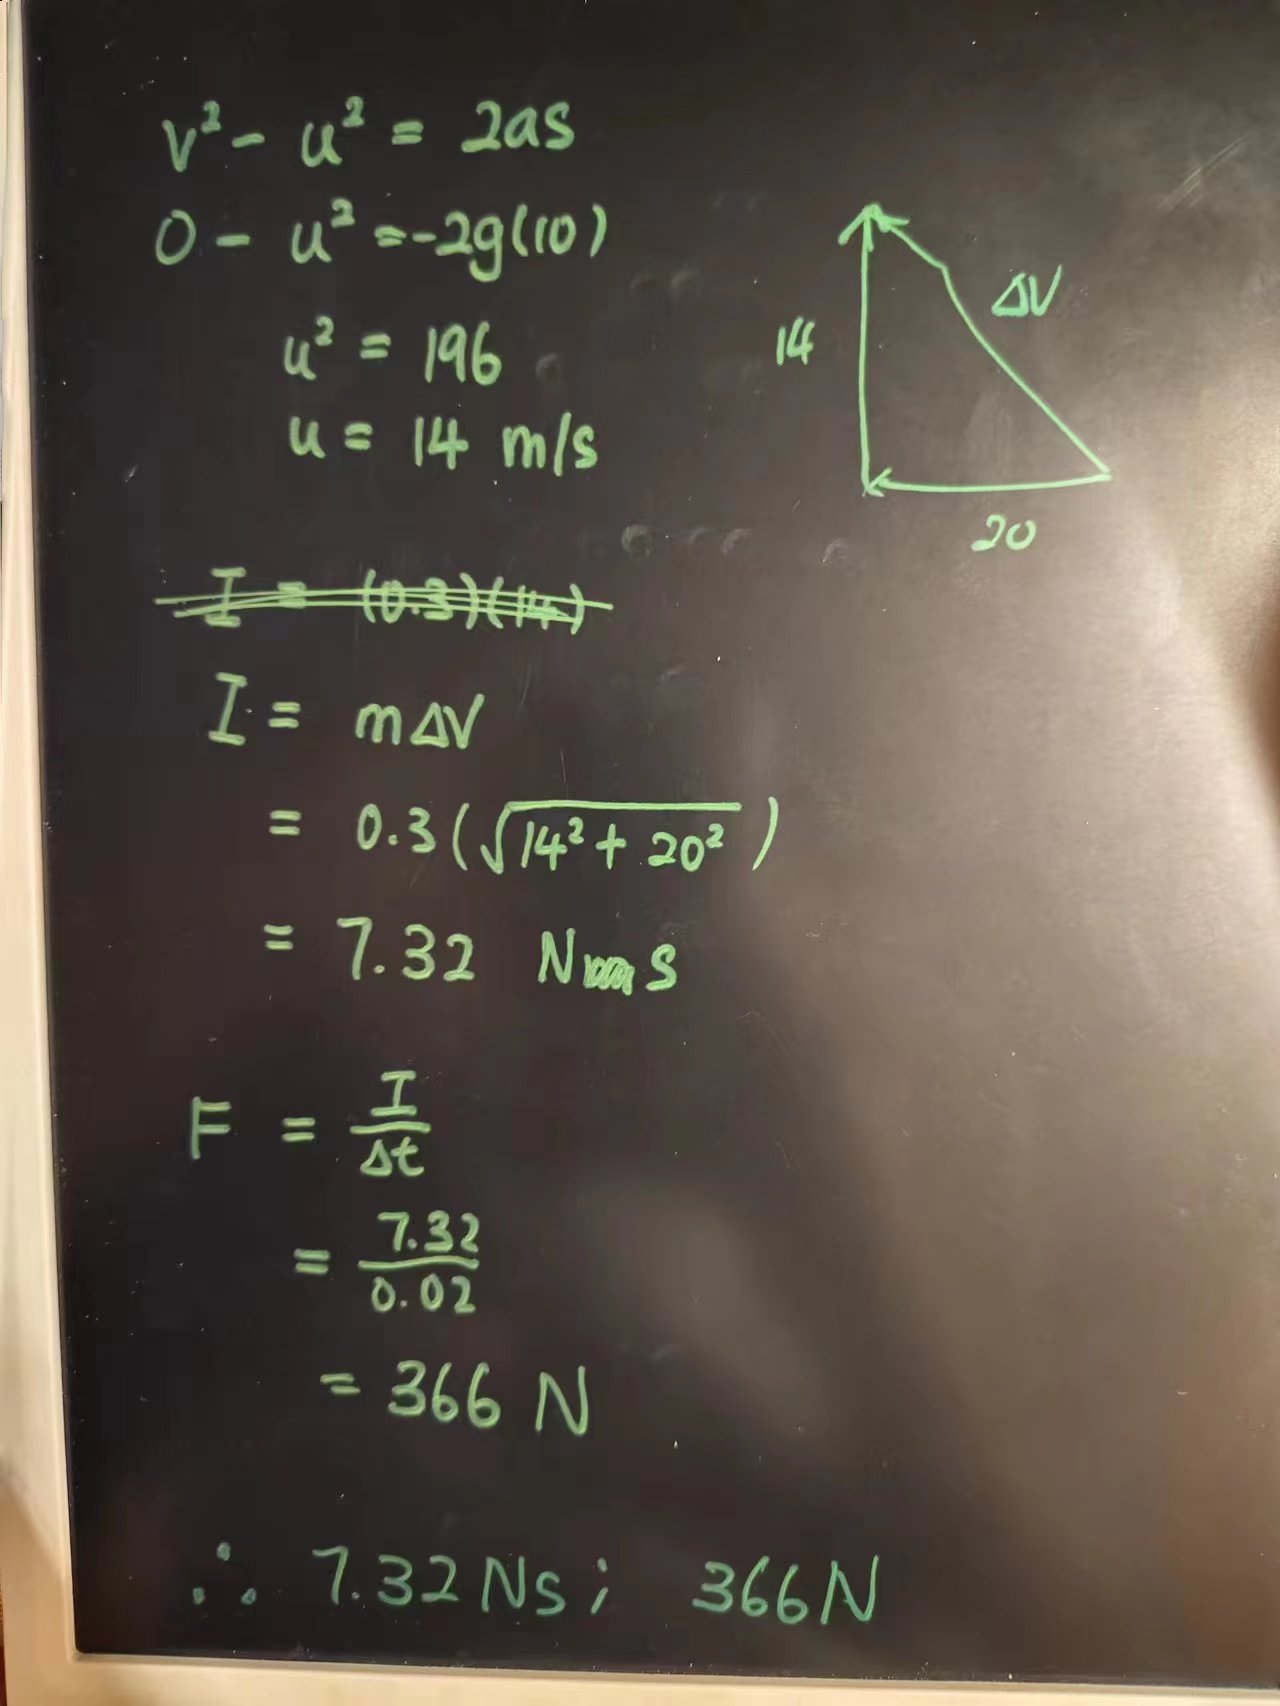 v² - u² = 2as
0 - u² = -2g(10)
u² = 196
u = 14 m/s
14
ΔV
20
I = (0.3)(14)
I = mΔV
= 0.3(√14² + 20²)
= 7.32 N s
F = I/Δt
= 7.32/0.02
= 366 N
∴ 7.32 Ns; 366N